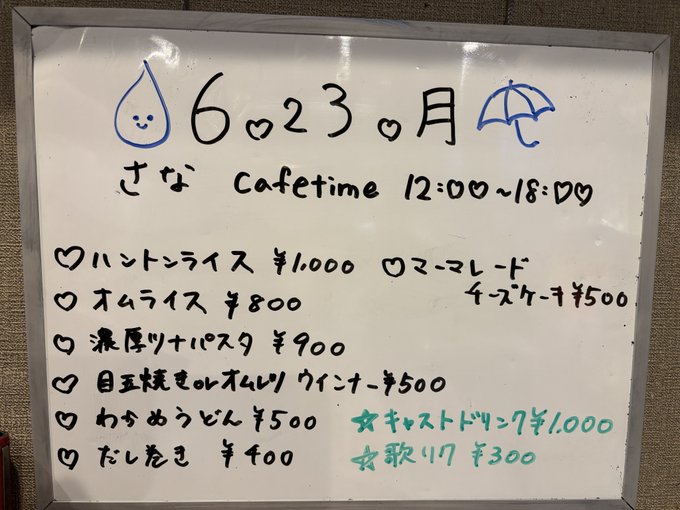 6.23.月
さな cafetime 12:00~18:00
♡ハントンライス ¥1,000
♡オムライス ¥800
♡濃厚ツナパスタ ¥900
♡目玉焼きorオムレツ ウインナー¥500
♡わかめうどん¥500
♡だし巻き ¥400
♡マーマレード
チーズケーキ¥500
☆キャストドリンク¥1,000
☆歌リク ¥300